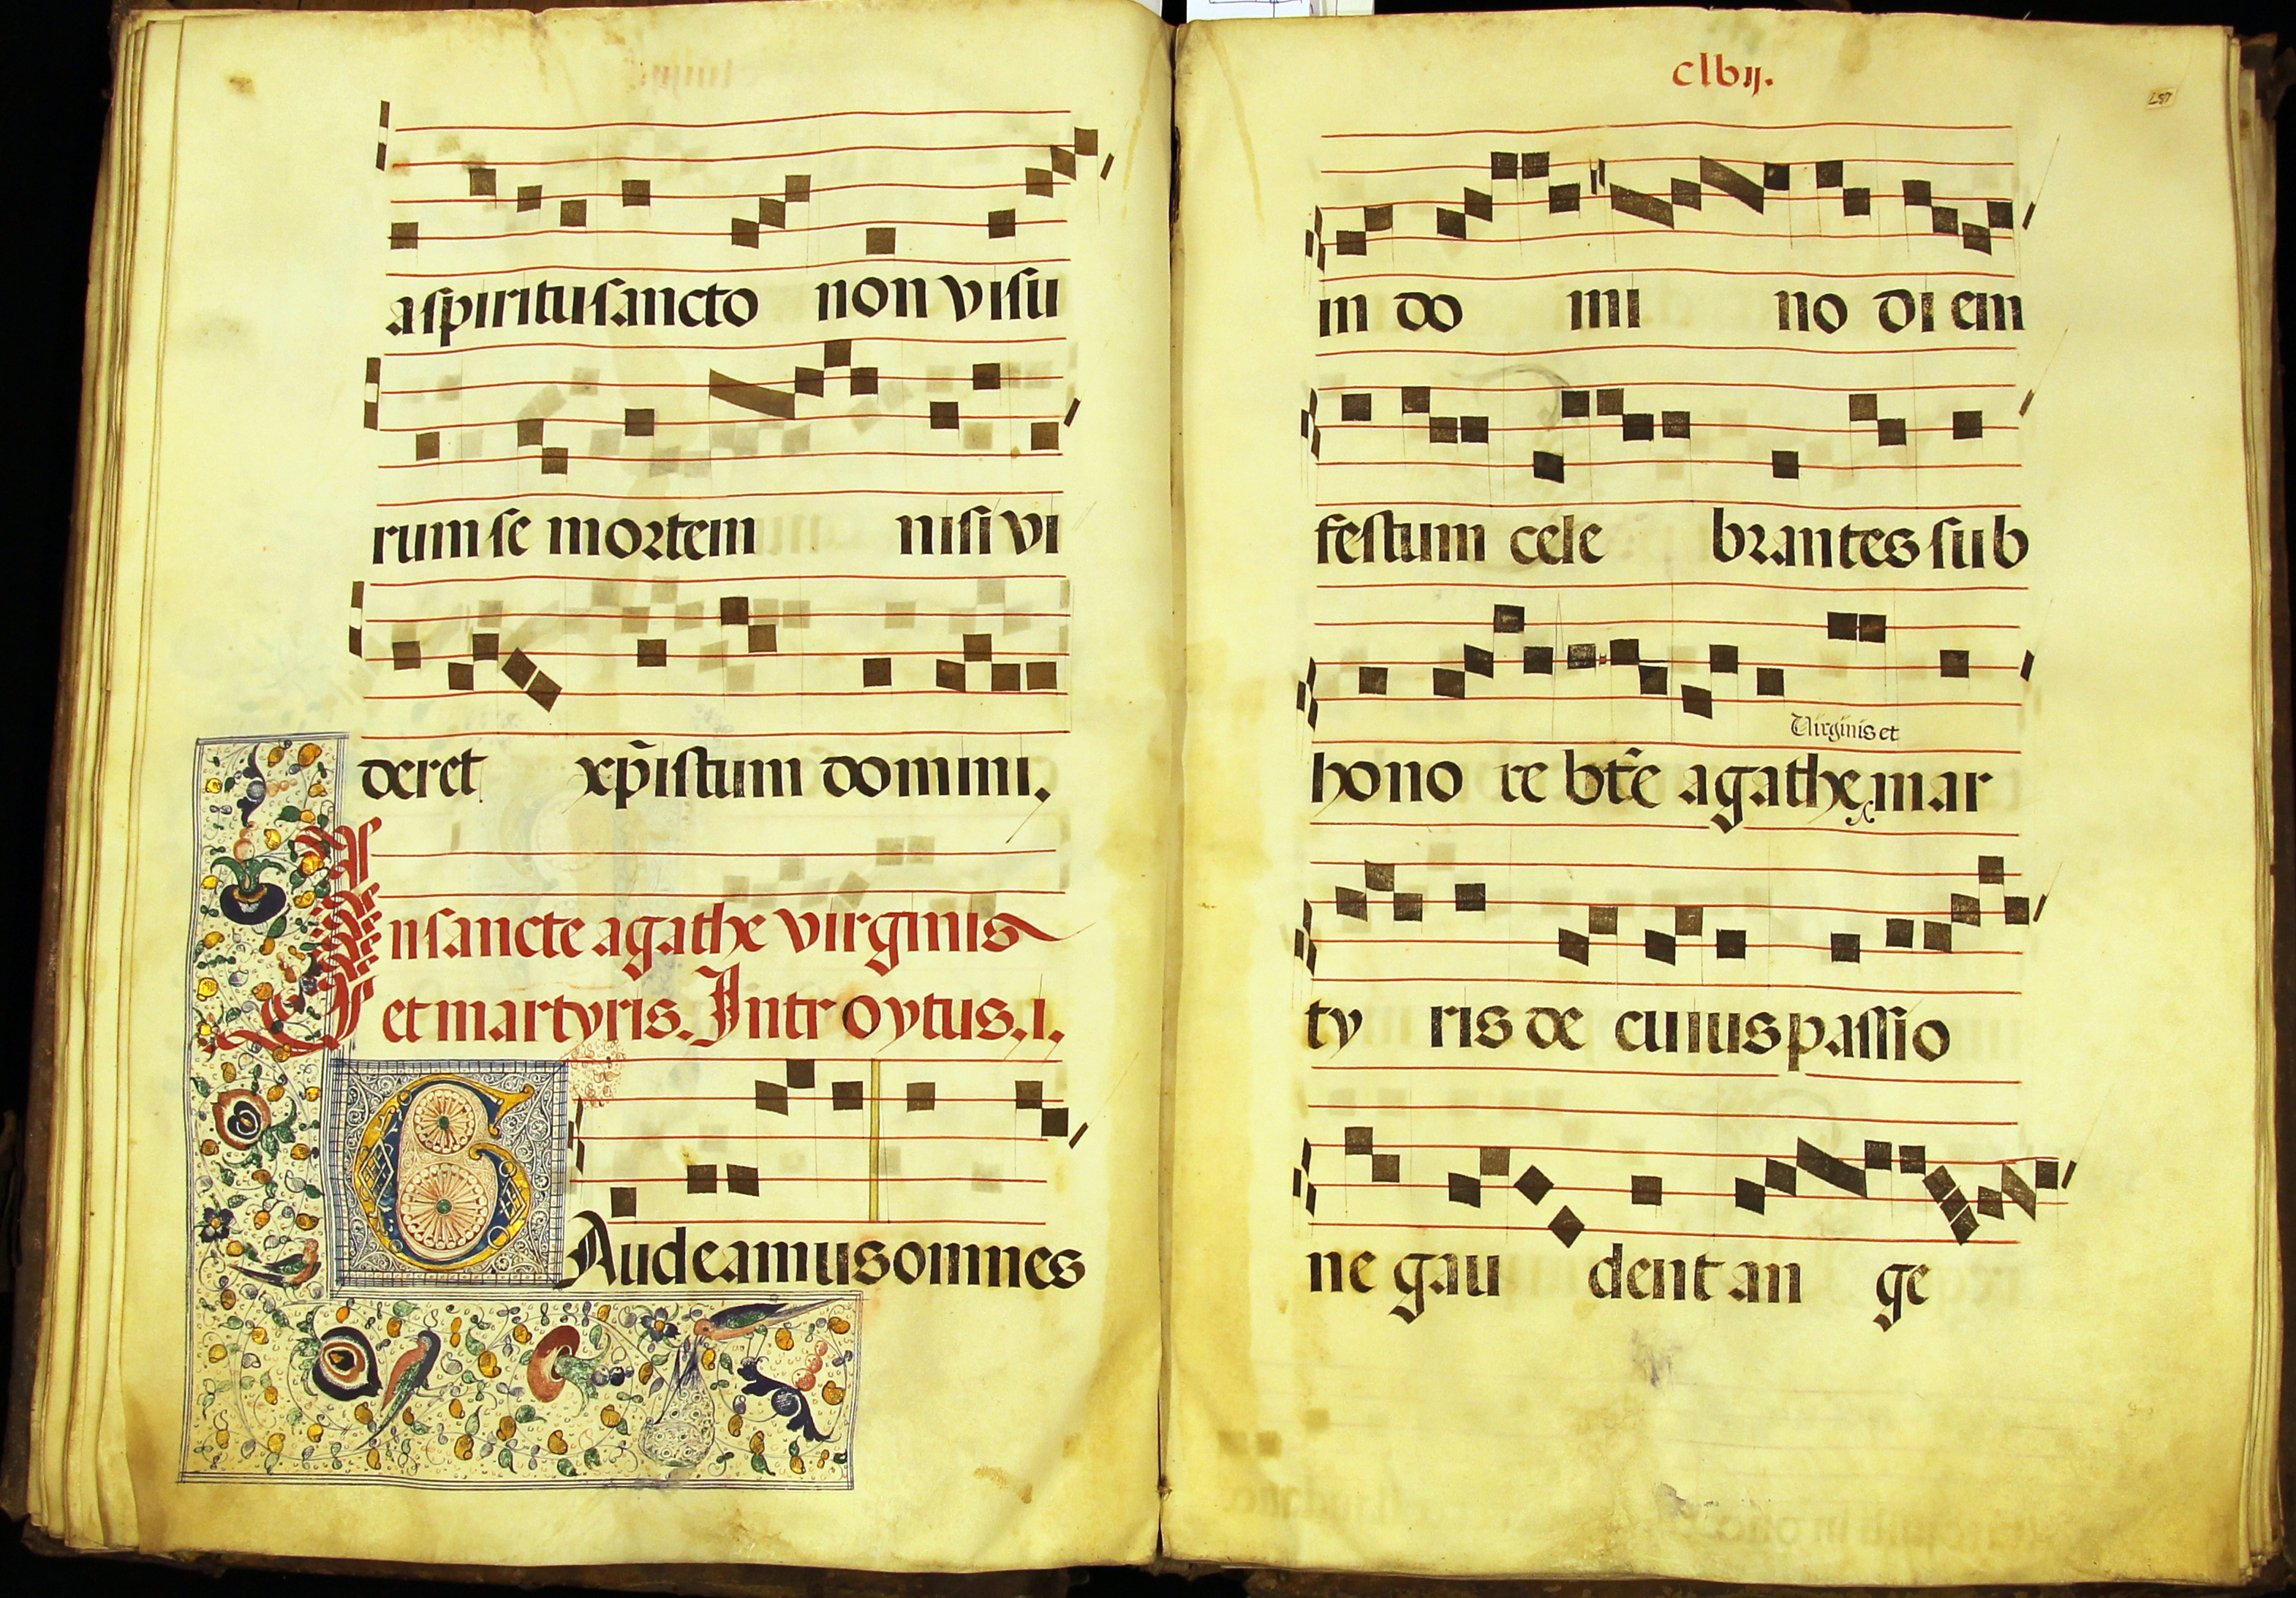 a spiritu sancto non visu
rum se mortem nisi vi
deret xp̄istum domini.
In sancte agathe virginis
et martyris. Introytus. i.
GAudeamus omnes
clvij.
157
in do mi no di em
festum cele brantes sub
Virginis et
hono re bt̄e agathe mar
ty ris de cuius passio
ne gau dent an ge